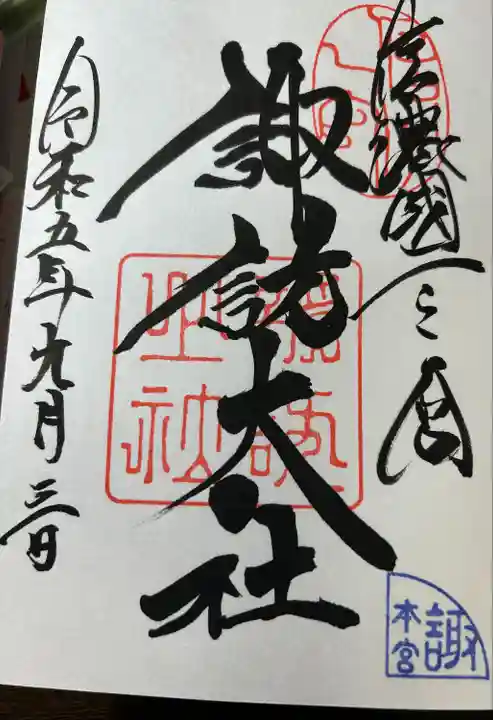 信濃國一之宮
諏訪大社
令和五年九月三日
諏訪
之社
諏
本宮